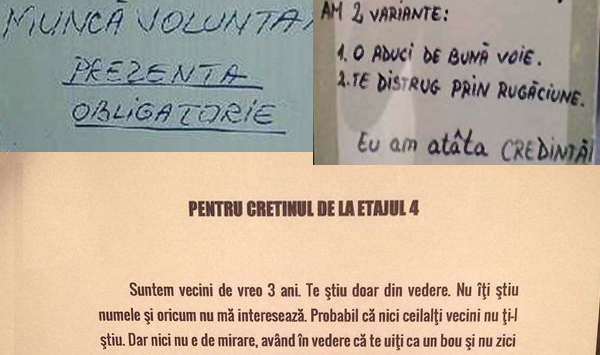 MUNCĂ VOLUNTA
PREZENTA
OBLIGATORIE
AM 2 VARIANTE:
1. O ADUCI DE BUNĂ VOIE.
2. TE DISTRUG PRIN RUGĂCIUNE.
Eu am atâta CREDINȚĂ!
PENTRU CRETINUL DE LA ETAJUL 4
Suntem vecini de vreo 3 ani. Te ştiu doar din vedere. Nu îţi ştiu
numele şi oricum nu mă interesează. Probabil că nici ceilalţi vecini nu ţi-l
ştiu. Dar nici nu e de mirare, având în vedere că te uiţi ca un bou şi nu zici